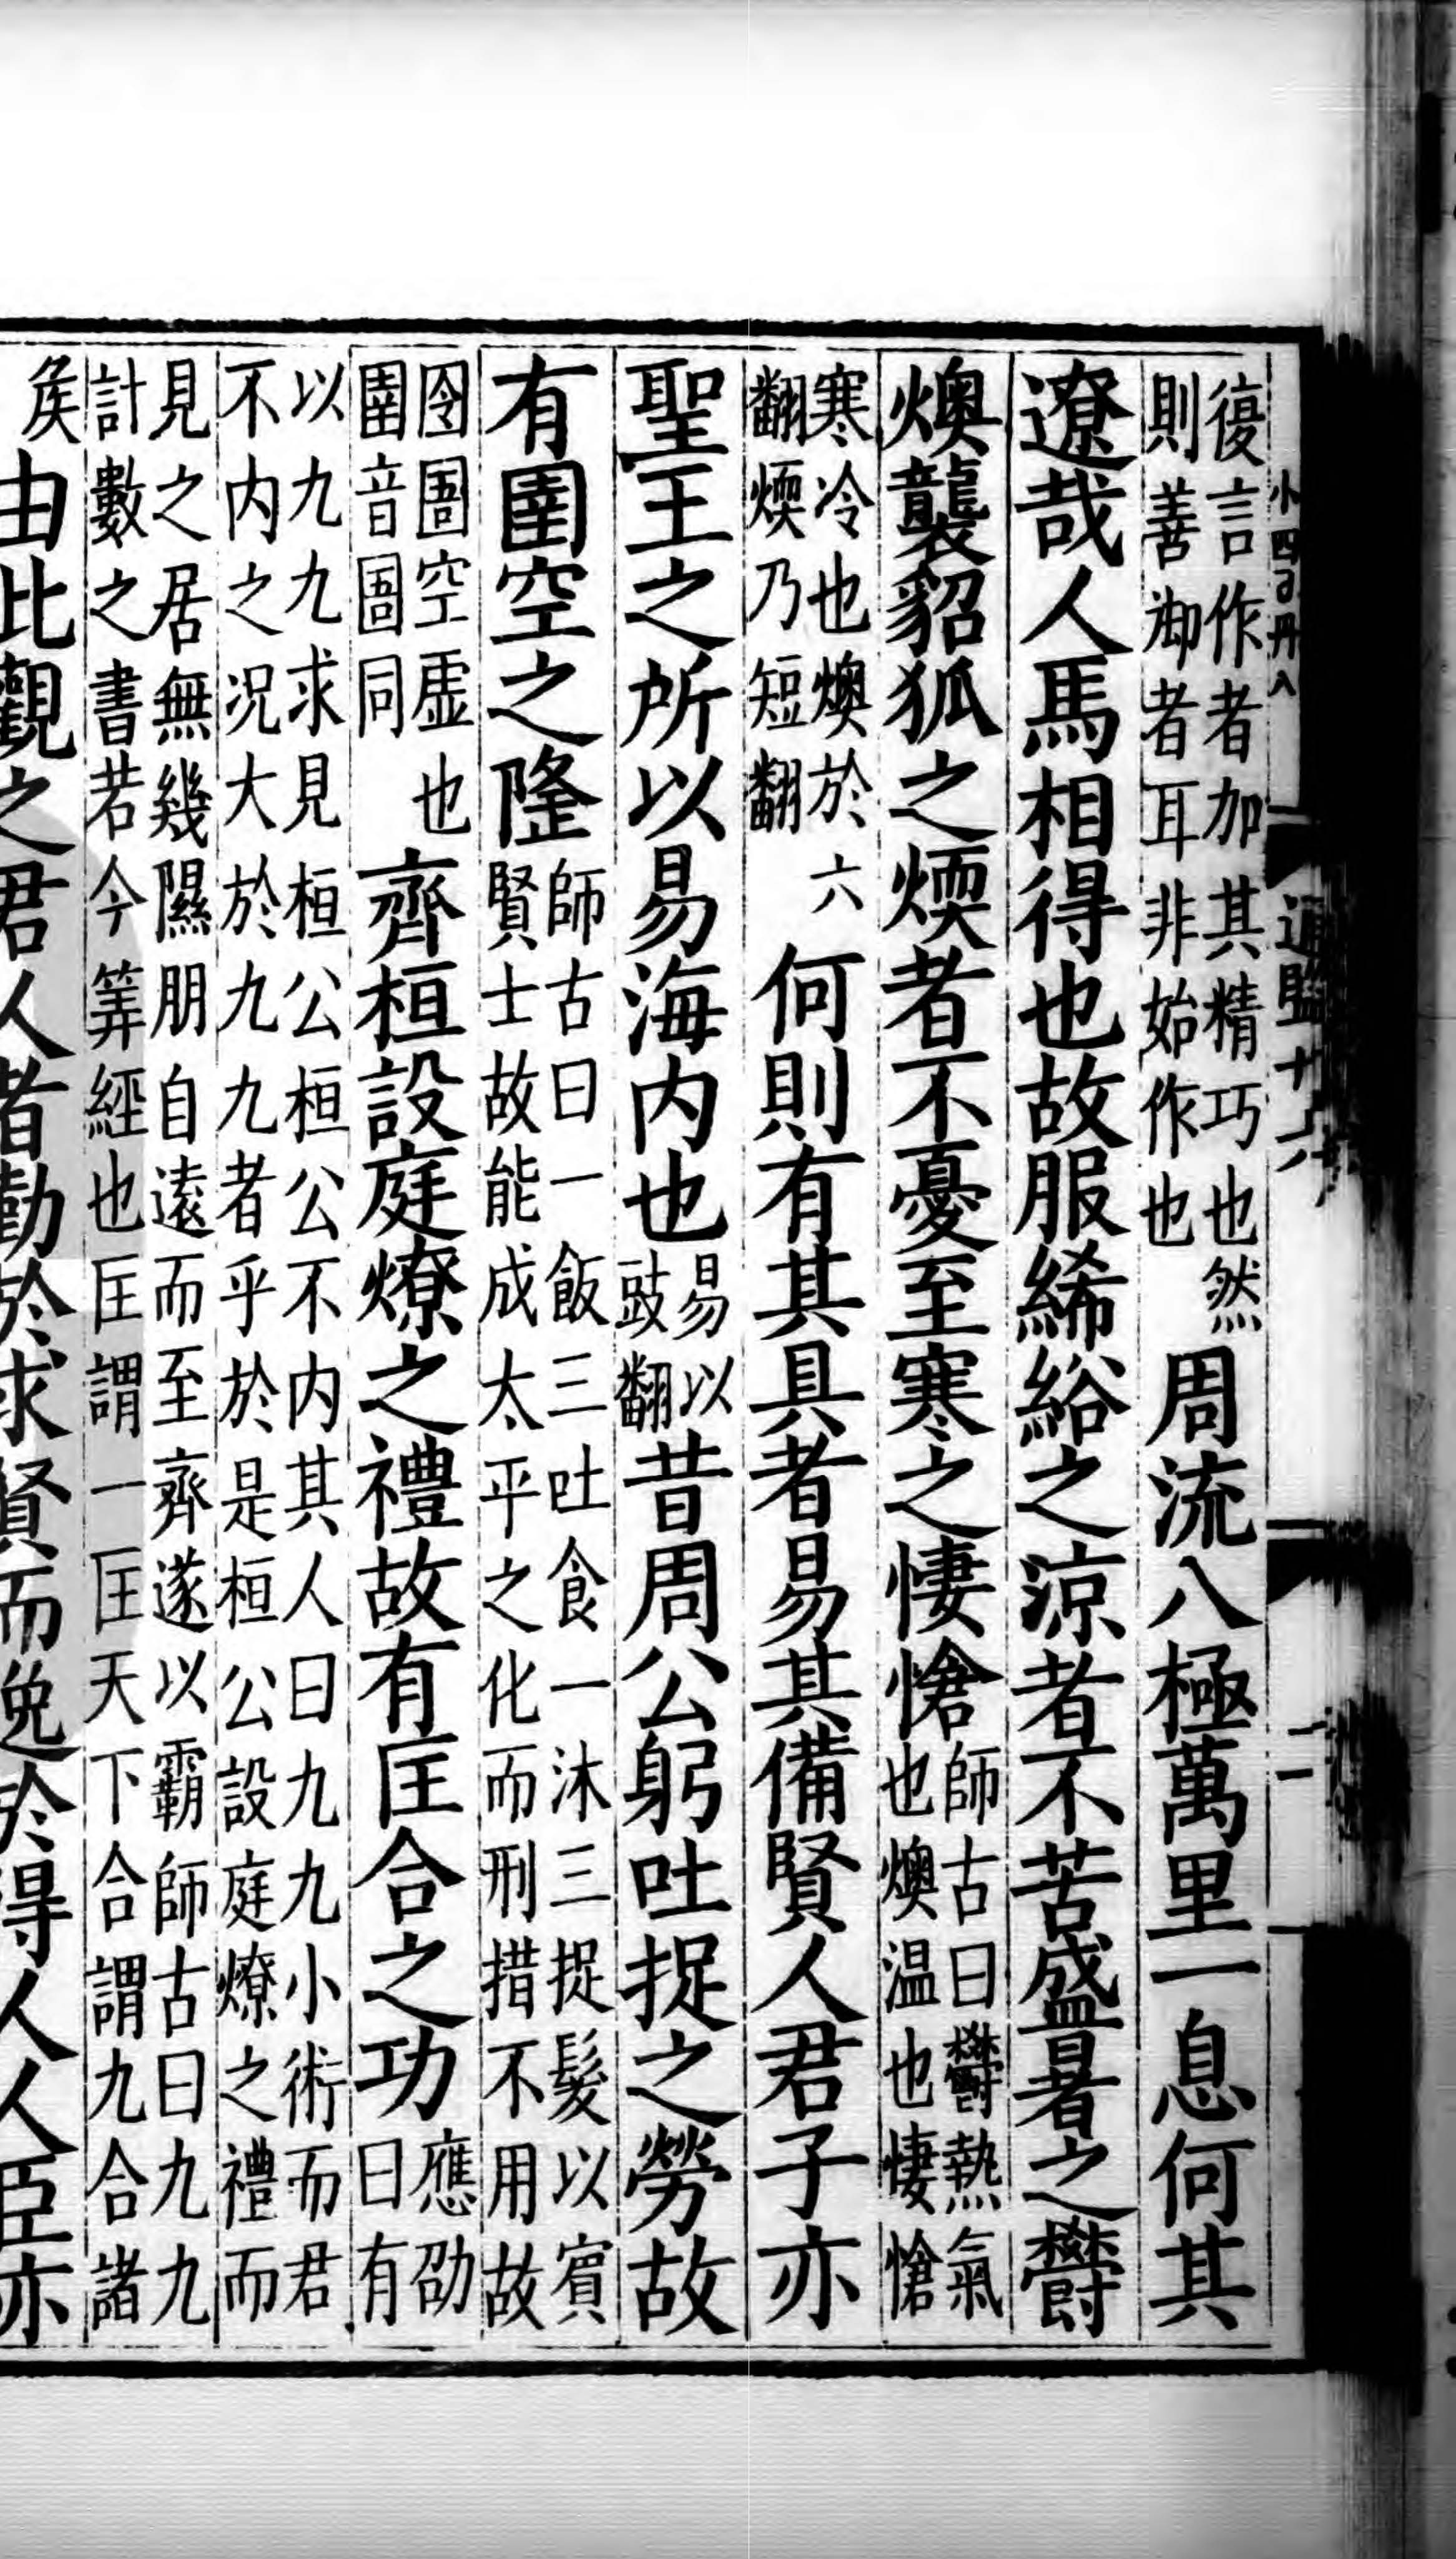 小四百卅八
通鑑廿六
復言作者加其精巧也然則善御者耳非始作也周流八極萬里一息何其
遼哉人馬相得也故服絺綌之涼者不苦盛暑之鬱
燠襲貂狐之煗者不憂至寒之悽愴師古曰鬱熱氣也燠温也悽愴
寒冷也燠於六翻煗乃短翻何則有其具者易其備賢人君子亦
聖王之所以易海内也易以豉翻昔周公躬吐捉之勞故
有圉空之隆師古曰一飯三吐食一沐三捉髮以賓賢士故能成太平之化而刑措不用故
囹圄空虚也圉音圄同齊桓設庭燎之禮故有匡合之功應劭曰有
以九九求見桓公桓公不内其人曰九九小術而君不内之况大於九九者乎於是桓公設庭燎之禮而
見之居無幾隰朋自遠而至齊遂以霸師古曰九九計數之書若今筭經也匡謂一匡天下合謂九合諸
矦由此觀之君人者勤於求賢而逸於得人人臣亦